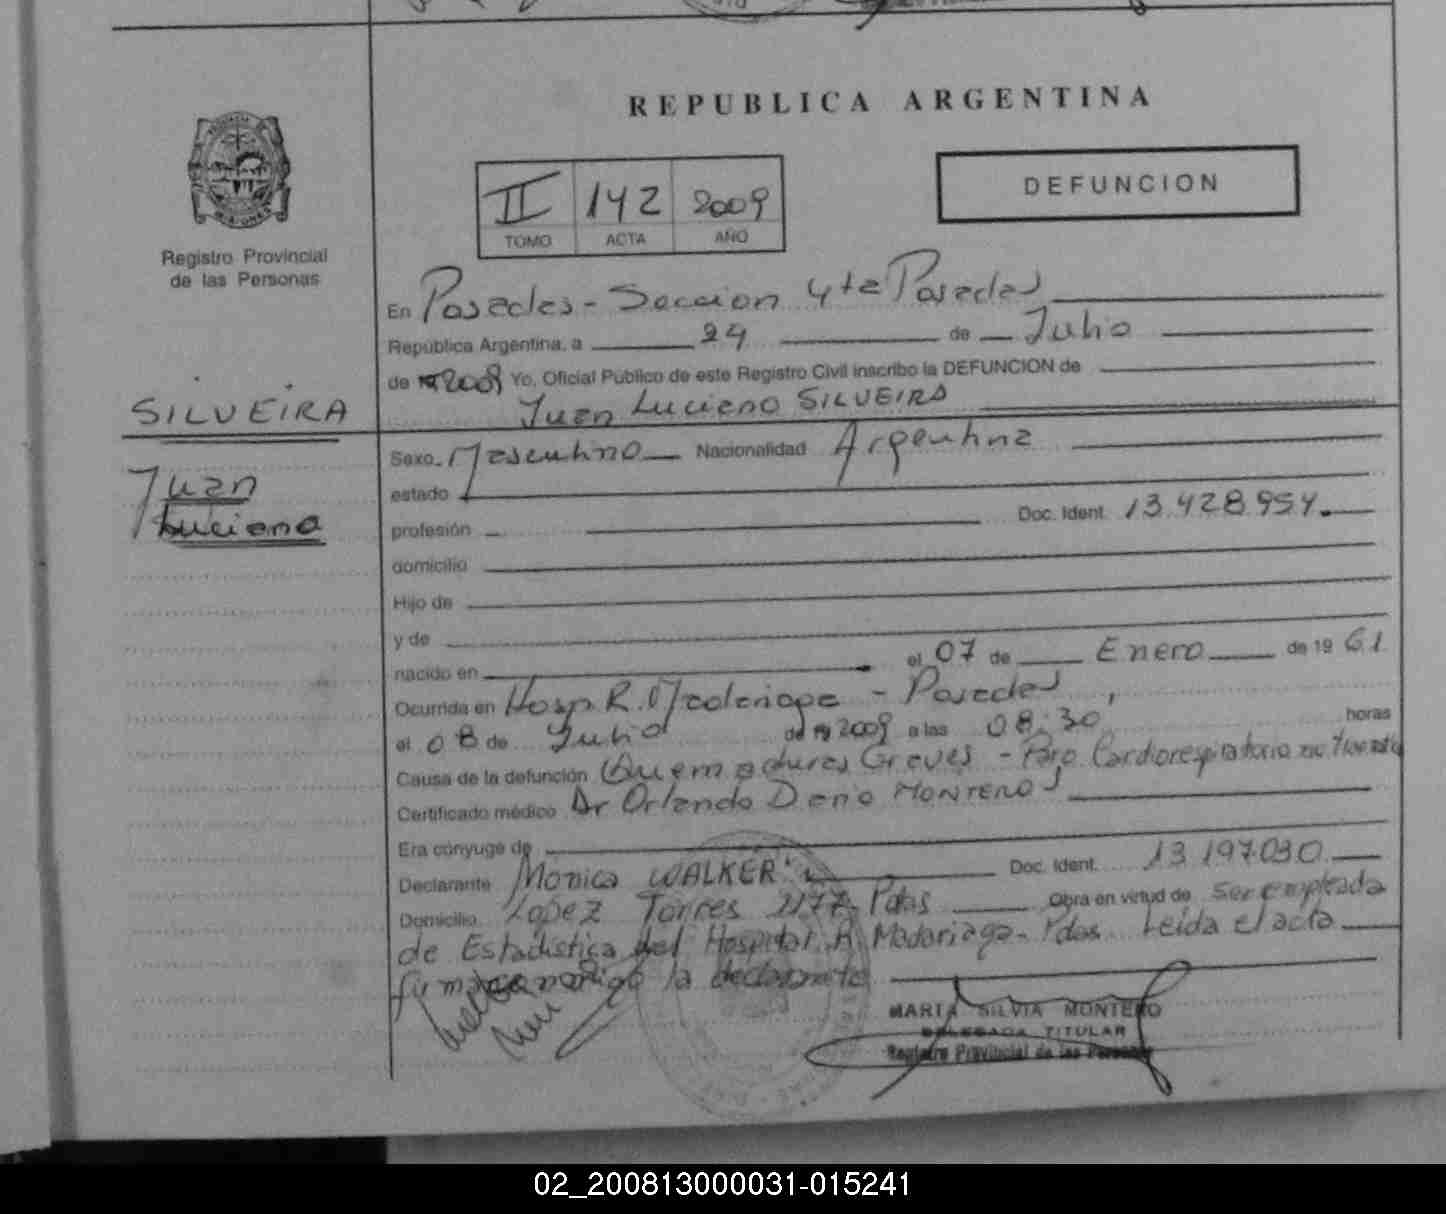 REPUBLICA ARGENTINA
II 142 2009
TOMO ACTA AÑO
DEFUNCION
Registro Provincial
de las Personas
En Posadas - Seccion 4ta Posadas
República Argentina, a 24 de Julio
de 2009 Yo, Oficial Público de este Registro Civil inscribo la DEFUNCION de
SILVEIRA
Juan Luciano SILVEIRA
Juan
Luciano
Sexo Masculino Nacionalidad Argentina
estado
profesión Doc. Ident. 13.428.954.
domicilio
Hijo de
y de
nacido en el 07 de Enero de 19 61
Ocurrida en Hosp. R. Madariaga - Posadas,
el 08 de Julio de 2009 a las 08:30 horas
Causa de la defunción Quemaduras Graves - Paro Cardiorespiratorio no traumatico
Certificado médico Dr Orlando Dario MONTERO
Era cónyuge de
Declarante Monica WALKER Doc. Ident. 13.197.030
Domicilio Lopez Torres 2177 Pdas Obra en virtud de ser empleada
de Estadistica del Hospital R. Madariaga - Pdas Leida el acta
firma conmigo la declarante
MARTA SILVIA MONTERO
DELEGADA TITULAR
Registro Provincial de las Personas
02_200813000031-015241